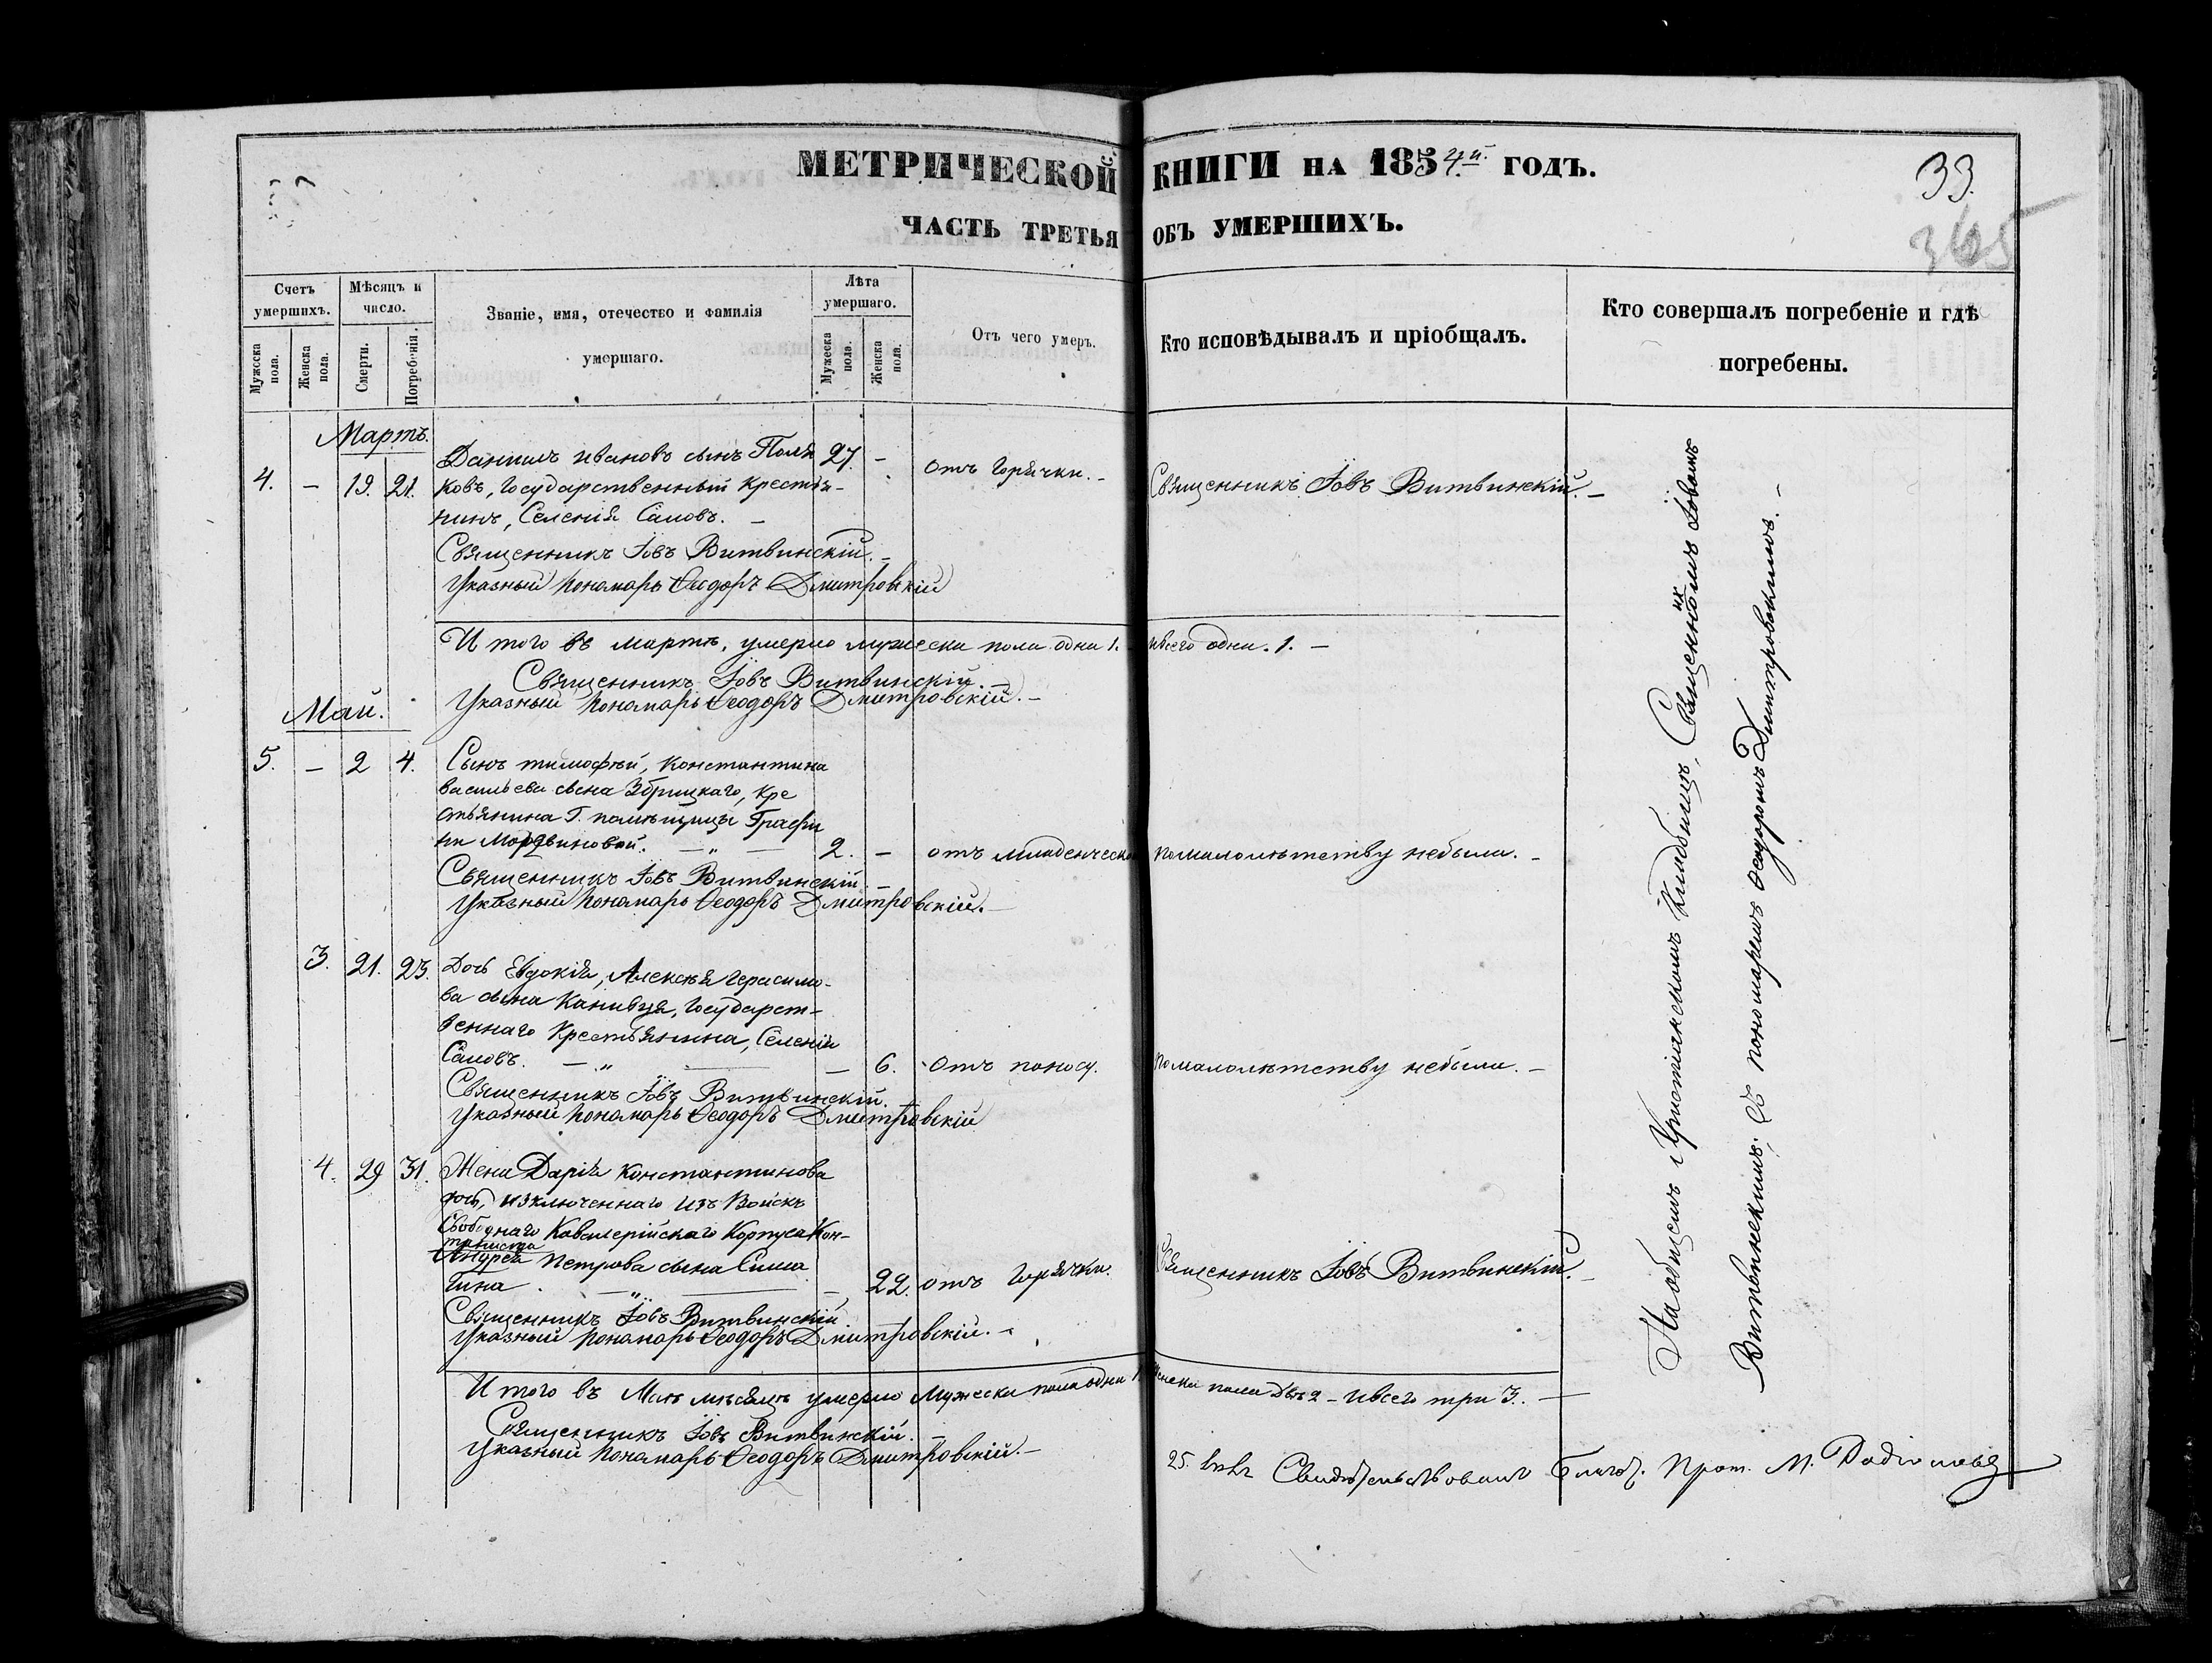 МЕТРИЧЕСКОЙ КНИГИ НА 1854.й. ГОДЪ.
33.
365
ЧАСТЬ ТРЕТЬЯ ОБЪ УМЕРШИХЪ.
Счетъ умершихъ.
Мужеска пола.
Женска пола.
Мѣсяцъ и число.
Смерти.
Погребенія.
Званіе, имя, отечество и фамилія
умершаго.
Лѣта умершаго.
Мужеска пола.
Женска пола.
Отъ чего умеръ.
Кто исповѣдывалъ и пріобщалъ.
Кто совершалъ погребеніе и гдѣ
погребены.
Мартъ.
4. – 19. 21. Даниилъ ивановъ сынъ Поля 27. – отъ Горячки. – Священникъ Іовъ Витвинскій. –
ковъ, Государственный крестья-
нинъ, Селенія Самовъ. –
Священникъ Іовъ Витвинскій. –
Указный Пономарь Ѳеодоръ Дмитровскій
И того въ мартѣ, умерло мужеска пола одни 1. – ивсего одни. 1. –
Священникъ Іовъ Витвинскій.
Указный Пономарь Ѳеодоръ Дмитровскій. –
Май.
5. – 2 4. Сынъ тимофѣй, константина
васильева сына Збрицкаго, кре
стьянина Г. помѣщицы Графи
ни Мордвиновой. – „ – 2. – отъ младенческой помалолѣтству небыли. –
Священникъ Іовъ Витвинскій. –
Указный Пономарь Ѳеодоръ Дмитровскій. –
3. 21. 23. Дочь Евдокія, Алексѣя Герасимо-
ва сына Канивця, Государст-
веннаго Крестьянина, Селенія
Самовъ. – „ – – 6. Отъ поносу. помалолѣтству небыли. –
Священникъ Іовъ Витвинскій.
Указный Пономарь Ѳеодоръ Дмитровскій
4. 29 31. Жена Дарія Константинова
дочь, изключеннаго изъ Войскъ
Своднаго Кавалерійскаго Корпуса Кон-
Андрея Петрова сына Сима
гина – „ – – 22. отъ Горячки. Священникъ Іовъ Витвинскій. –
Священникъ Іовъ Витвинскій.
Указный Пономарь Ѳеодоръ Дмитровскій. –
И того въ Маѣ мѣсяцѣ умерло Мужеска пола одни 1. женска пола двѣ 2 – ивсего три 3. –
Священникъ Іовъ Витвинскій. –
Указный Пономарь Ѳеодоръ Дмитровскій. –
На общемъ Христіанскомъ Кладбищѣ, Священникомъ Іовомъ
Витвинскимъ, съ пономаремъ Ѳеодоромъ Дмитровскимъ. –
25. Свидѣтельствовалъ Благоч. Прот. М. Родіоновъ